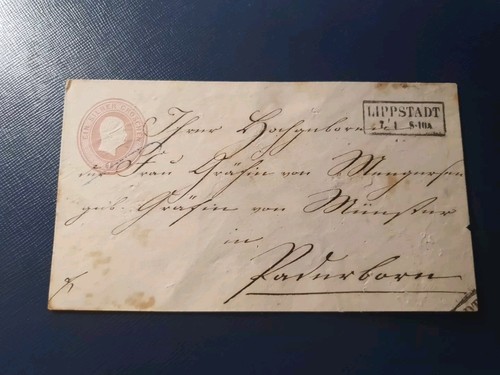 EIN SILBER GROSCHEN
LIPPSTADT
7 1 8-10A
Ihrer Hochgeboren
Frau Gräfin von Mengersen
geb. Gräfin von Münster
in
Paderborn